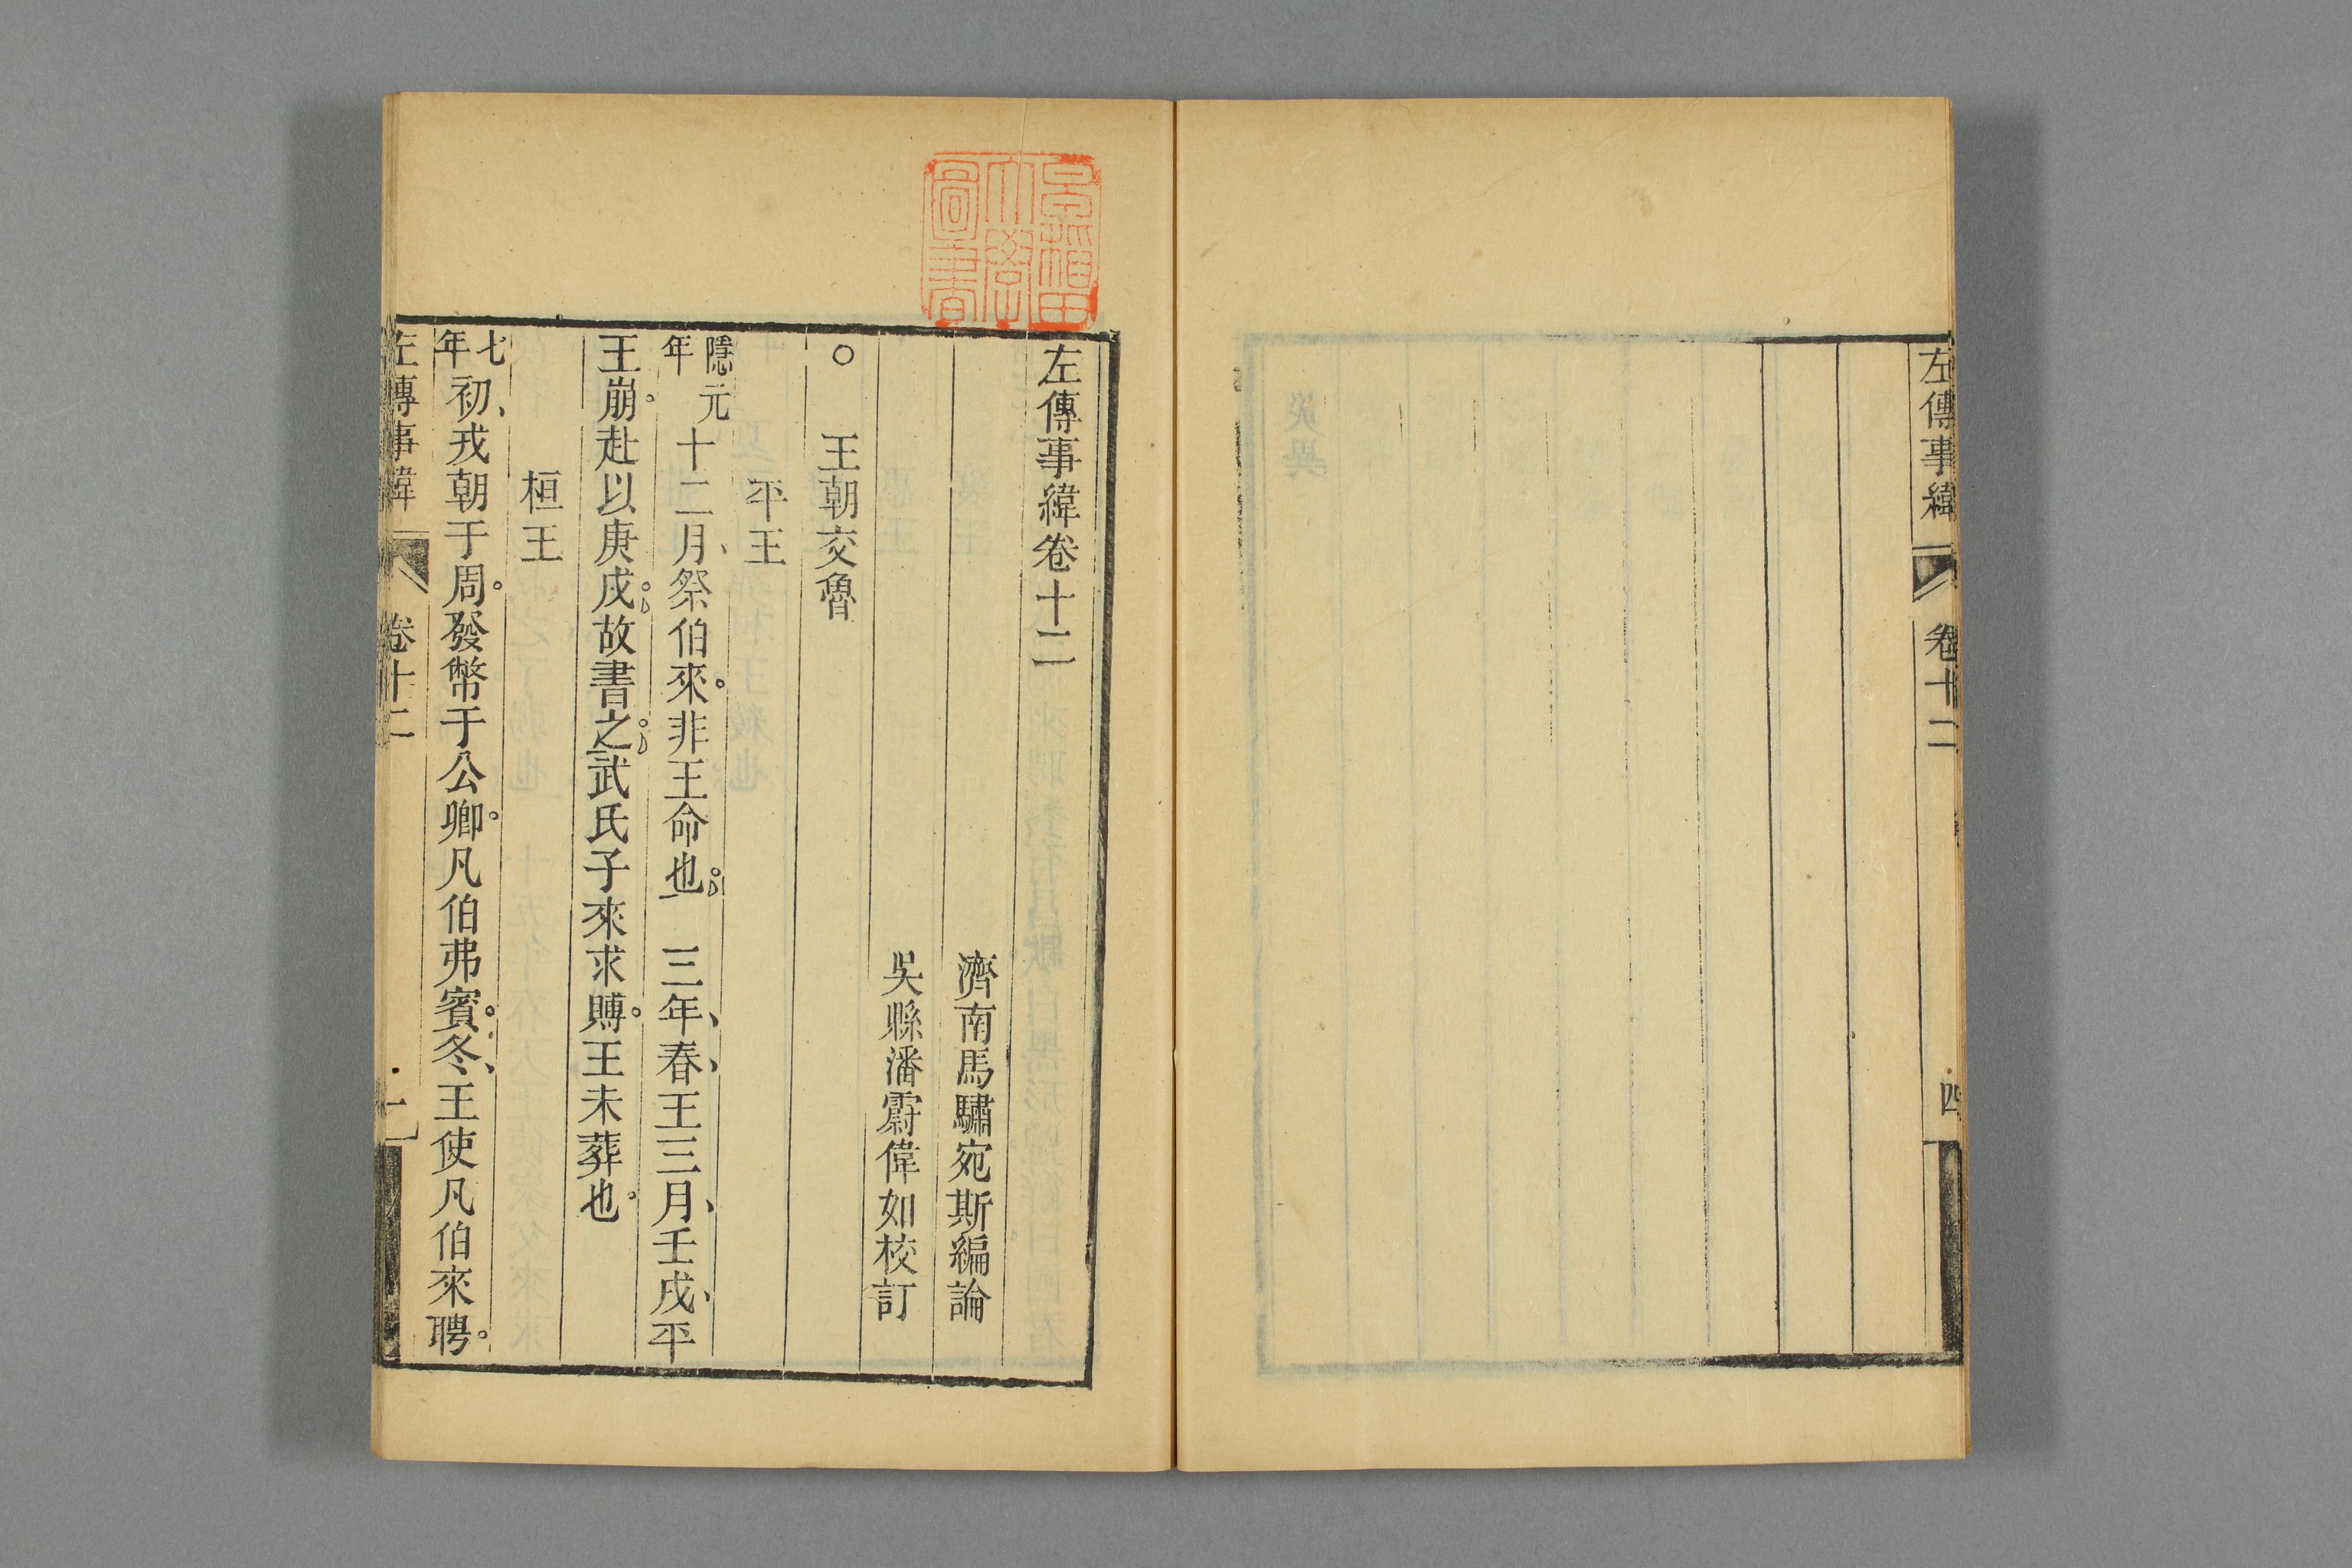 左傳事緯
卷十二
四
左傳事緯卷十二
濟南馬驌宛斯編論
吳縣潘霨偉如校訂
○　王朝交魯
平王
隱元年十二月、祭伯來。非王命也。　三年、春、王三月、壬戌、平
王崩。赴以庚戌。故書之。武氏子來求賻。王未葬也。
桓王
七年初、戎朝于周。發幣于公卿。凡伯弗賓。冬、王使凡伯來聘。
左傳事緯
卷十二
一
早稲田
大學
圖書